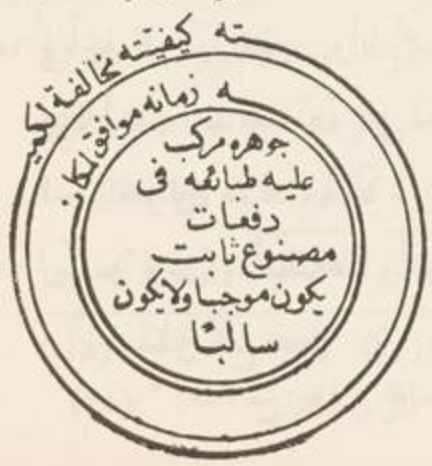 كيفيته مخالفة لكميته
زمانه موافق لمكانه
جوهره مركب
عليه طبائعه فى
دفعات
مصنوع ثابت
يكون موجبا ولا يكون
سالبًا